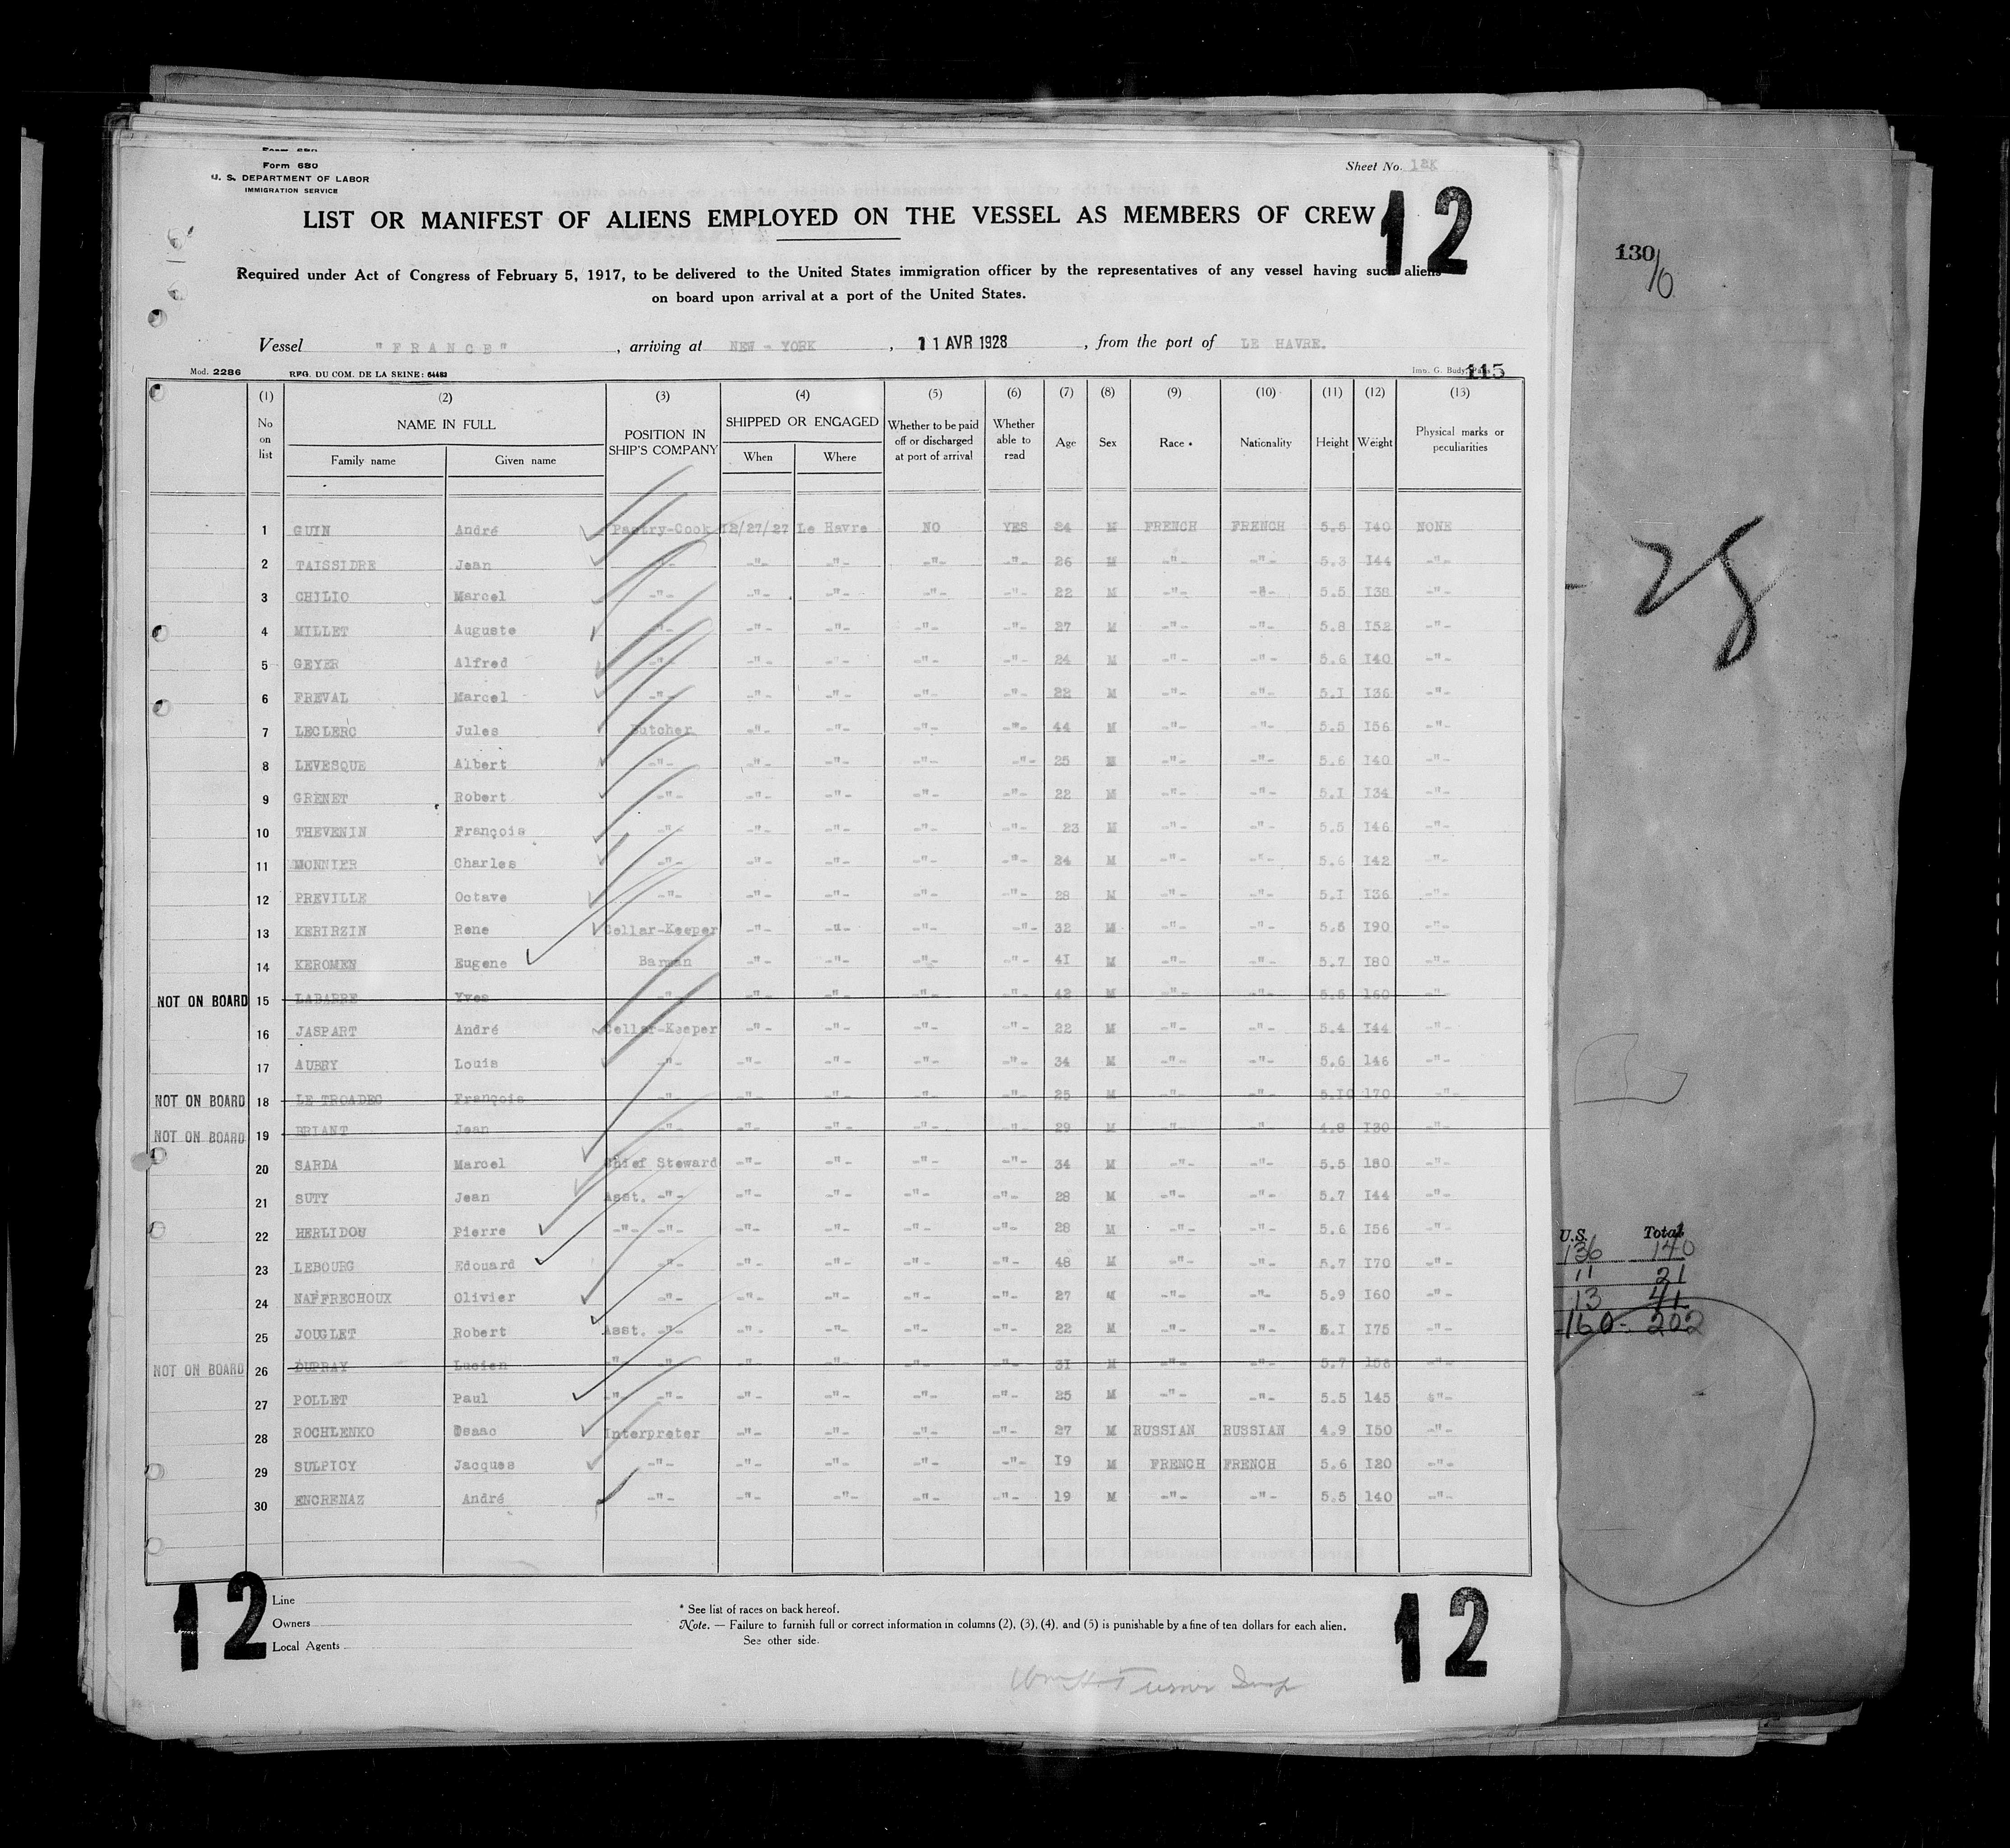 Form 680
U. S. DEPARTMENT OF LABOR
IMMIGRATION SERVICE
Sheet No. 12K
12
LIST OR MANIFEST OF ALIENS EMPLOYED ON THE VESSEL AS MEMBERS OF CREW
Required under Act of Congress of February 5, 1917, to be delivered to the United States immigration officer by the representatives of any vessel having such aliens
on board upon arrival at a port of the United States.
Vessel "FRANCE", arriving at NEW-YORK, 11 AVR 1928, from the port of LE HAVRE.
Mod. 2286 RFG. DU COM. DE LA SEINE: 64483 Imp. G. Budy, Paris 115
(1) (2) (3) (4) (5) (6) (7) (8) (9) (10) (11) (12) (13)
No on list NAME IN FULL Family name Given name POSITION IN SHIP'S COMPANY SHIPPED OR ENGAGED When Where Whether to be paid off or discharged at port of arrival Whether able to read Age Sex Race * Nationality Height Weight Physical marks or peculiarities
1 GUIN André Pastry-Cook 12/27/27 Le Havre NO YES 24 M FRENCH FRENCH 5.5 140 NONE
2 TAISSIDRE Jean -"- -"- -"- -"- -"- 26 M -"- -"- 5.3 144 -"-
3 CHILIO Marcel -"- -"- -"- -"- -"- 22 M -"- -"- 5.5 138 -"-
4 MILLET Auguste -"- -"- -"- -"- -"- 27 M -"- -"- 5.8 152 -"-
5 GEYER Alfred -"- -"- -"- -"- -"- 24 M -"- -"- 5.6 140 -"-
6 FREVAL Marcel -"- -"- -"- -"- -"- 22 M -"- -"- 5.1 136 -"-
7 LECLERC Jules Butcher -"- -"- -"- -"- 44 M -"- -"- 5.5 156 -"-
8 LEVESQUE Albert -"- -"- -"- -"- -"- 25 M -"- -"- 5.6 140 -"-
9 GRENET Robert -"- -"- -"- -"- -"- 22 M -"- -"- 5.1 134 -"-
10 THEVENIN François -"- -"- -"- -"- -"- 23 M -"- -"- 5.5 146 -"-
11 MONNIER Charles -"- -"- -"- -"- -"- 24 M -"- -"- 5.6 142 -"-
12 PREVILLE Octave -"- -"- -"- -"- -"- 28 M -"- -"- 5.1 136 -"-
13 KERIRZIN Rene Cellar-Keeper -"- -"- -"- -"- 32 M -"- -"- 5.6 190 -"-
14 KEROMEN Eugene Barman -"- -"- -"- -"- 41 M -"- -"- 5.7 180 -"-
NOT ON BOARD 15 LABARRE Yves -"- -"- -"- -"- -"- 42 M -"- -"- 5.6 160 -"-
16 JASPART André Cellar-Keeper -"- -"- -"- -"- 22 M -"- -"- 5.4 144 -"-
17 AUBRY Louis -"- -"- -"- -"- -"- 34 M -"- -"- 5.6 146 -"-
NOT ON BOARD 18 LE TROADEC François -"- -"- -"- -"- -"- 25 M -"- -"- 5.10 170 -"-
NOT ON BOARD 19 BRIANT Jean -"- -"- -"- -"- -"- 29 M -"- -"- 4.8 130 -"-
20 SARDA Marcel Chief Steward -"- -"- -"- -"- 34 M -"- -"- 5.5 180 -"-
21 SUTY Jean Asst. -"- -"- -"- -"- -"- 28 M -"- -"- 5.7 144 -"-
22 HERLIDOU Pierre -"- -"- -"- -"- -"- -"- 28 M -"- -"- 5.6 156 -"-
23 LEBOURG Edouard -"- -"- -"- -"- -"- 48 M -"- -"- 5.7 170 -"-
24 NAFFRECHOUX Olivier -"- -"- -"- -"- -"- 27 M -"- -"- 5.9 160 -"-
25 JOUGLET Robert Asst. -"- -"- -"- -"- -"- 22 M -"- -"- 5.1 175 -"-
NOT ON BOARD 26 DUPRAY Lucien -"- -"- -"- -"- -"- -"- 31 M -"- -"- 5.7 158 -"-
27 POLLET Paul -"- -"- -"- -"- -"- -"- 25 M -"- -"- 5.5 145 -"-
28 ROCHLENKO Isaac Interpreter -"- -"- -"- -"- 27 M RUSSIAN RUSSIAN 4.9 150 -"-
29 SULPICY Jacques -"- -"- -"- -"- -"- 19 M FRENCH FRENCH 5.6 120 -"-
30 ENCRENAZ André -"- -"- -"- -"- -"- 19 M -"- -"- 5.5 140 -"-
12
Line
Owners
Local Agents
* See list of races on back hereof.
Note. — Failure to furnish full or correct information in columns (2), (3), (4), and (5) is punishable by a fine of ten dollars for each alien.
See other side.
12
Wm H. Turner Insp
130
10
28
U.S. Total
136 140
11 21
13 41
160 - 202